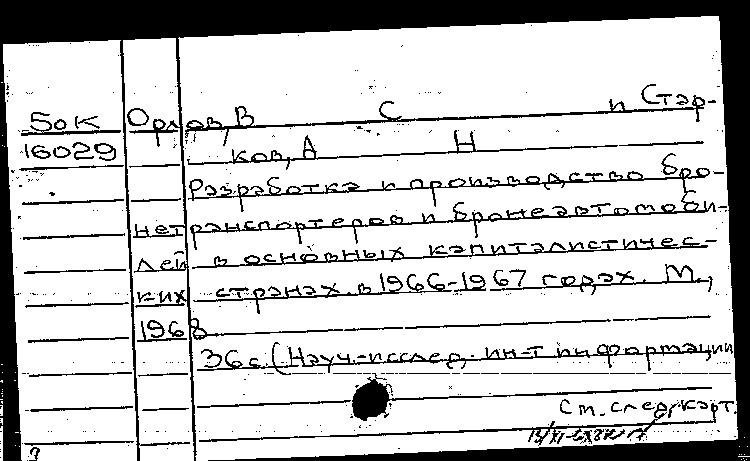 50К Орлов, В С и Стар-
16029 ков, А Н
Разработка и производство бро-
нетранспортеров и бронеавтомоби-
лей в основных капиталистичес-
ких странах в 1966-1967 годах. М.,
1968
36с. (Науч.-исслед. ин-т информации
См. след. карт.